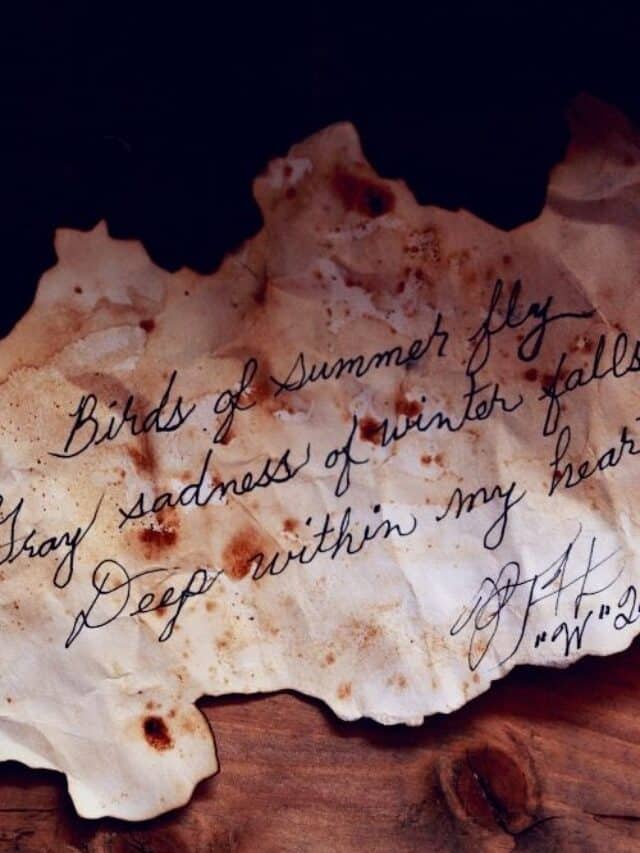 Birds of summer fly
Gray sadness of winter falls
Deep within my hear
"W" 2